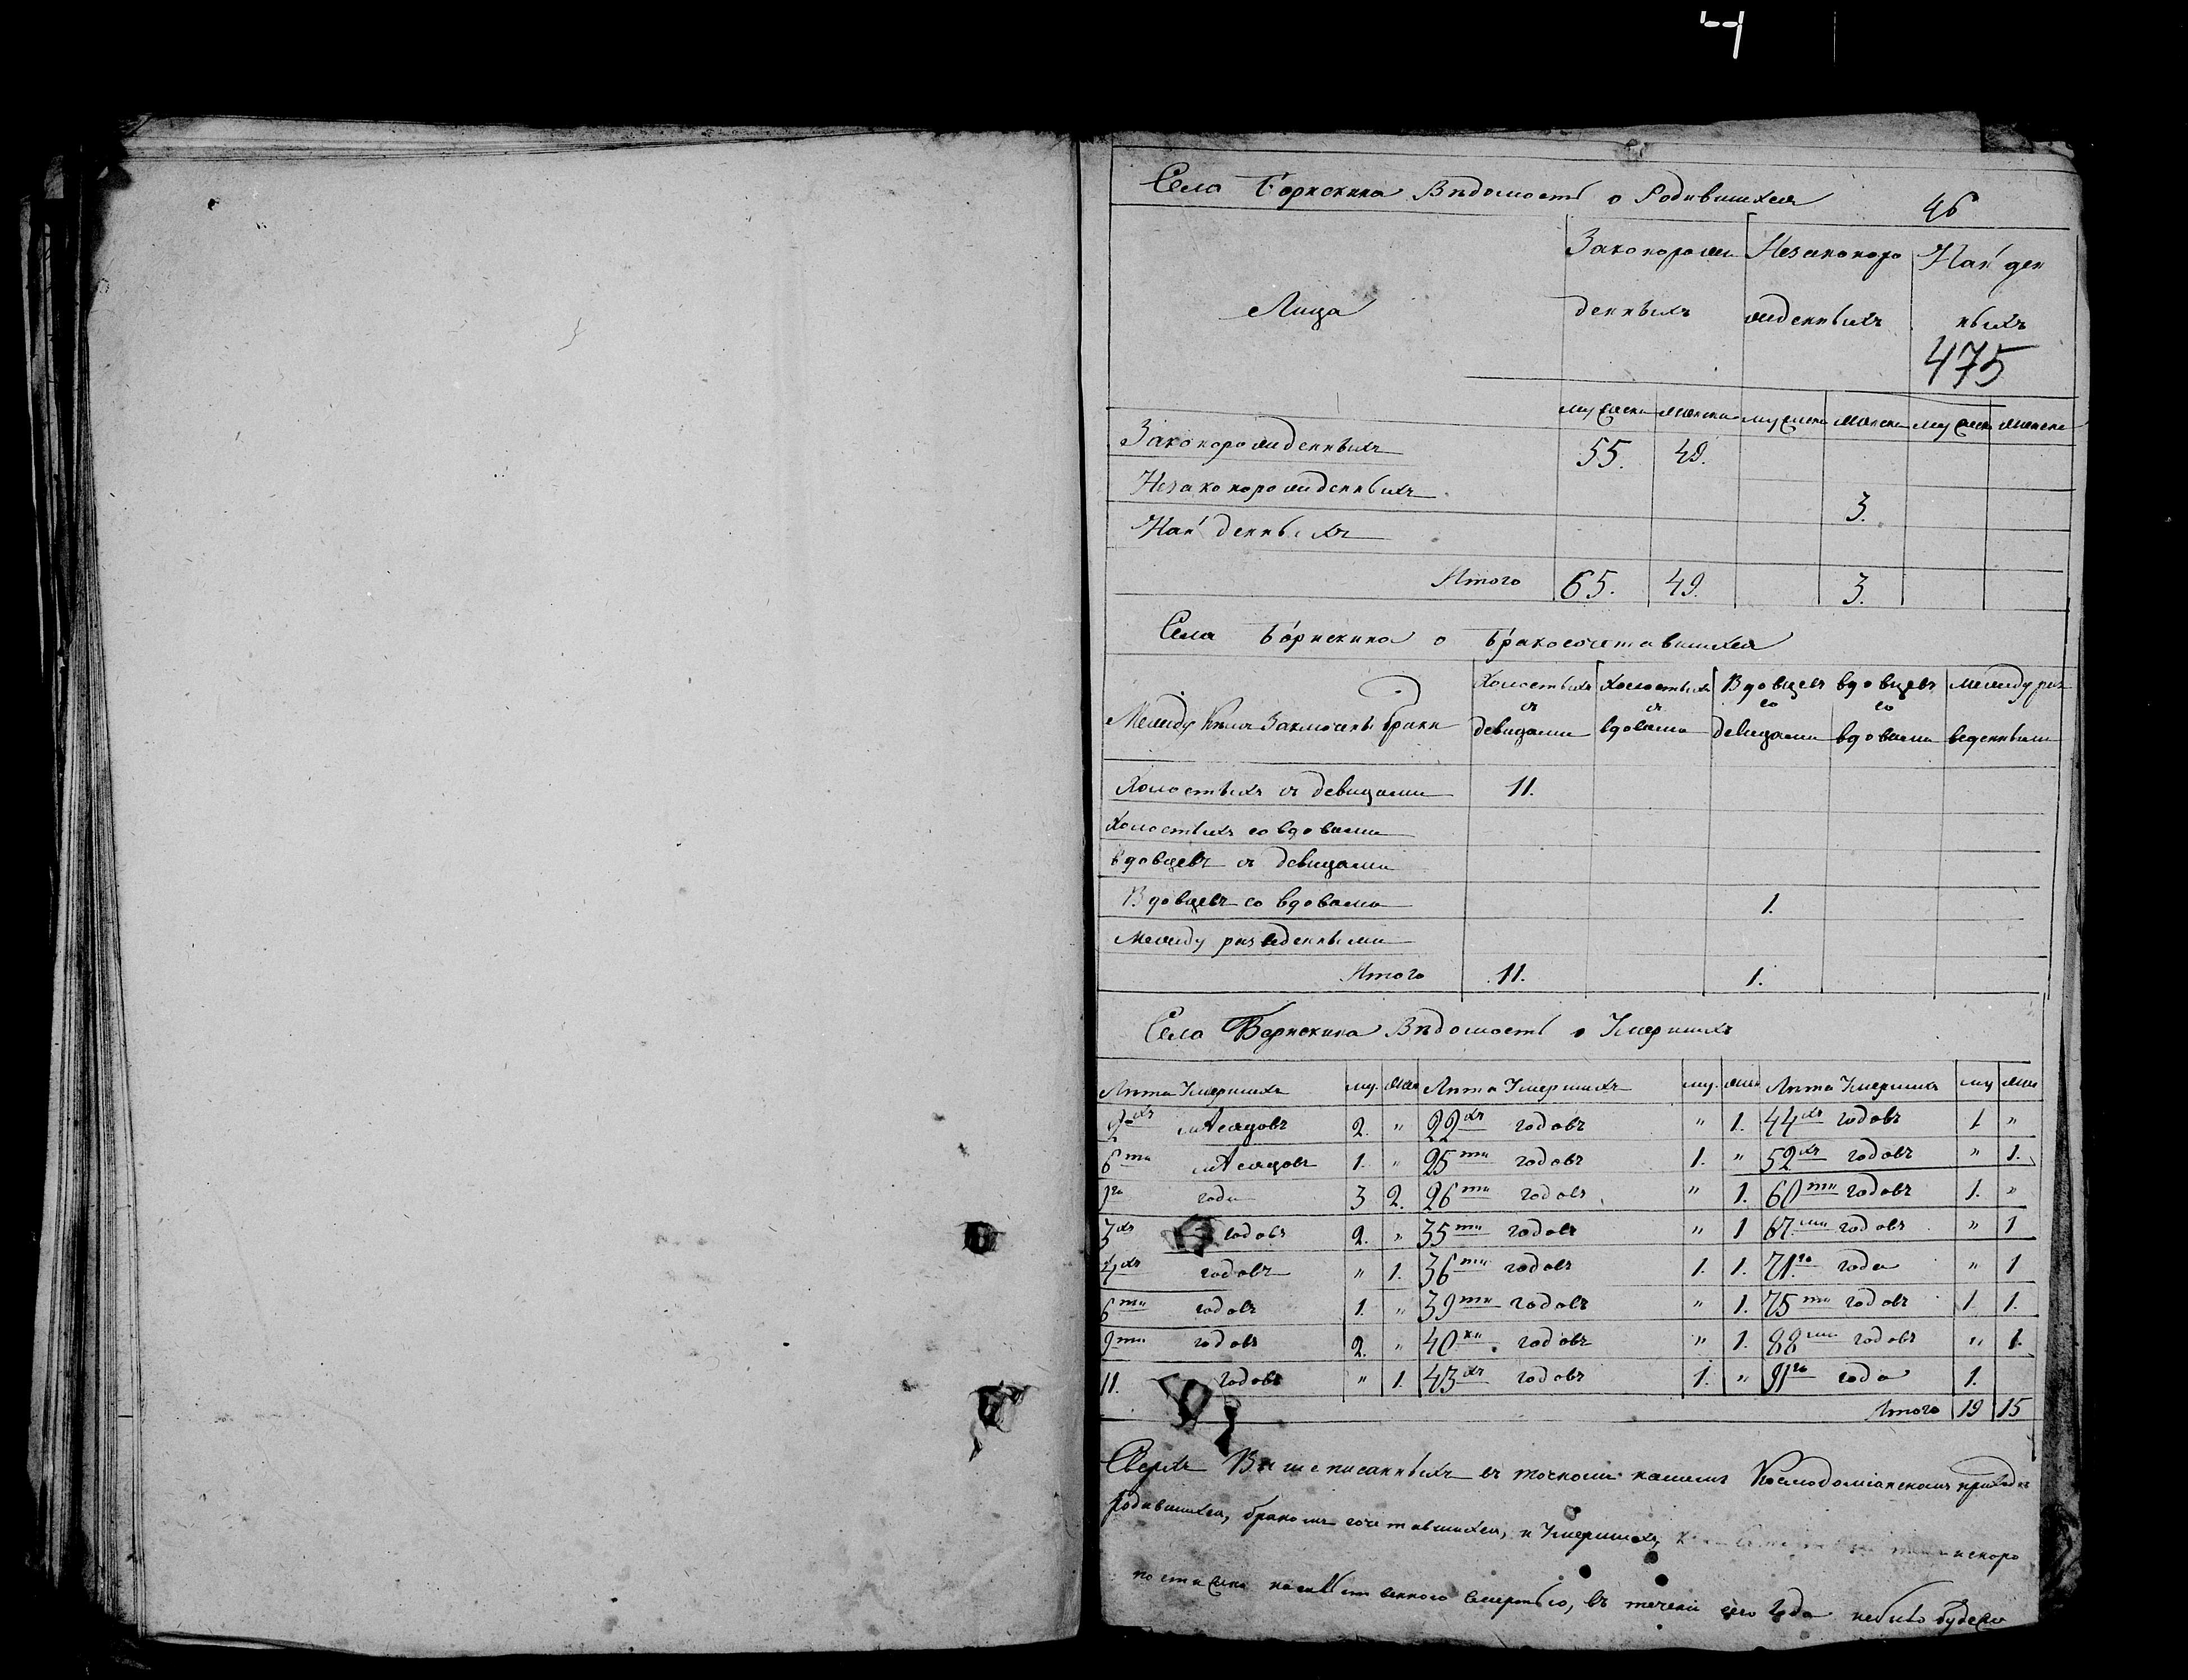 Села Борискина Вѣдомость о Родившихся
46
Лица
Законорож Незаконоро Най ден
денныхъ жденныхъ ныхъ
475
мужеск женска мужеск женска мужеск женска
Законорожденныхъ 55. 49.
Незаконорожденныхъ 3.
Най денныхъ
Итого 65. 49. 3.
Села Борискина о бракосочетавшихся
Между кѣмъ Заключены браки
Холостыхъ съ девицами
Холостыхъ съ вдовами
Вдовцевъ со девицами
вдовцевъ со вдовами
между раз веденными
Холостыхъ съ девицами 11.
холостыхъ со вдовами
вдовцевъ съ девицами
Вдовцевъ со вдовами 1.
между разведенными
Итого 11. 1.
Села Борискина Вѣдомость о Умершихъ
Лѣта Умершихъ му. жен Лѣта Умершихъ му. жен Лѣта Умершихъ му жен
2хъ мѣсяцовъ 2. " 22хъ годовъ " 1. 44хъ годовъ 1 "
6ти мѣсяцовъ 1. " 25ти годовъ 1. " 52хъ годовъ " 1.
1го года 3 2. 26ти годовъ " 1. 60ти годовъ 1. "
3хъ годовъ 2. " 35ти годовъ " 1 67ми годовъ " 1
4хъ годовъ " 1. 36ти годовъ 1. 1. 71го года " 1
6ти годовъ 1. " 39ти годовъ " 1. 75ти годовъ 1 1.
9ти годовъ 2. " 40ка годовъ " 1. 88ми годовъ " 1.
11. годовъ " 1. 43хъ годовъ 1. " 91го года 1.
Итого 19 15
Сверхъ Вышеписанныхъ въ точномъ нашемъ Космодоміанскомъ приходѣ
родившихся, бракомъ сочетавшихся, и Умершихъ, и скоро
постижно смертью, въ течени сего Года небыло